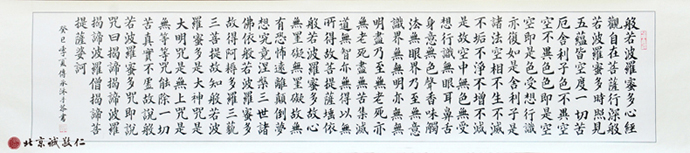 般若波羅蜜多心經
觀自在菩薩行深般
若波羅蜜多時照見
五蘊皆空度一切苦
厄舍利子色不異空
空不異色色即是空
空即是色受想行識
亦復如是舍利子是
諸法空相不生不滅
不垢不淨不增不減
是故空中無色無受
想行識無眼耳鼻舌
身意無色聲香味觸
法無眼界乃至無意
識界無無明亦無無
明盡乃至無老死亦
無老死盡無苦集滅
道無智亦無得以無
所得故菩提薩埵依
般若波羅蜜多故心
無罣礙無罣礙故無
有恐怖遠離顛倒夢
想究竟涅槃三世諸
佛依般若波羅蜜多
故得阿耨多羅三藐
三菩提故知般若波
羅蜜多是大神咒是
大明咒是無上咒是
無等等咒能除一切
苦真實不虛故說般
若波羅蜜多咒即說
咒曰揭諦揭諦波羅
揭諦波羅僧揭諦菩
提薩婆訶
癸巳季夏 書
北京誠敬仁